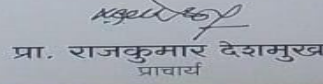 प्रा. राजकुमार देशमुख
प्राचार्य